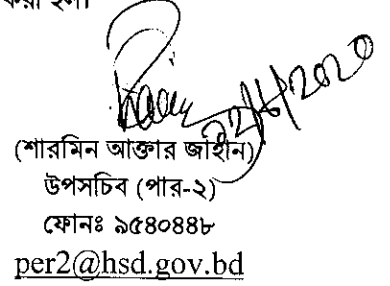 করা হল।
(শারমিন আক্তার জাহান)
উপসচিব (পার-২)
ফোনঃ ৯৫৪০৪৪৮
per2@hsd.gov.bd